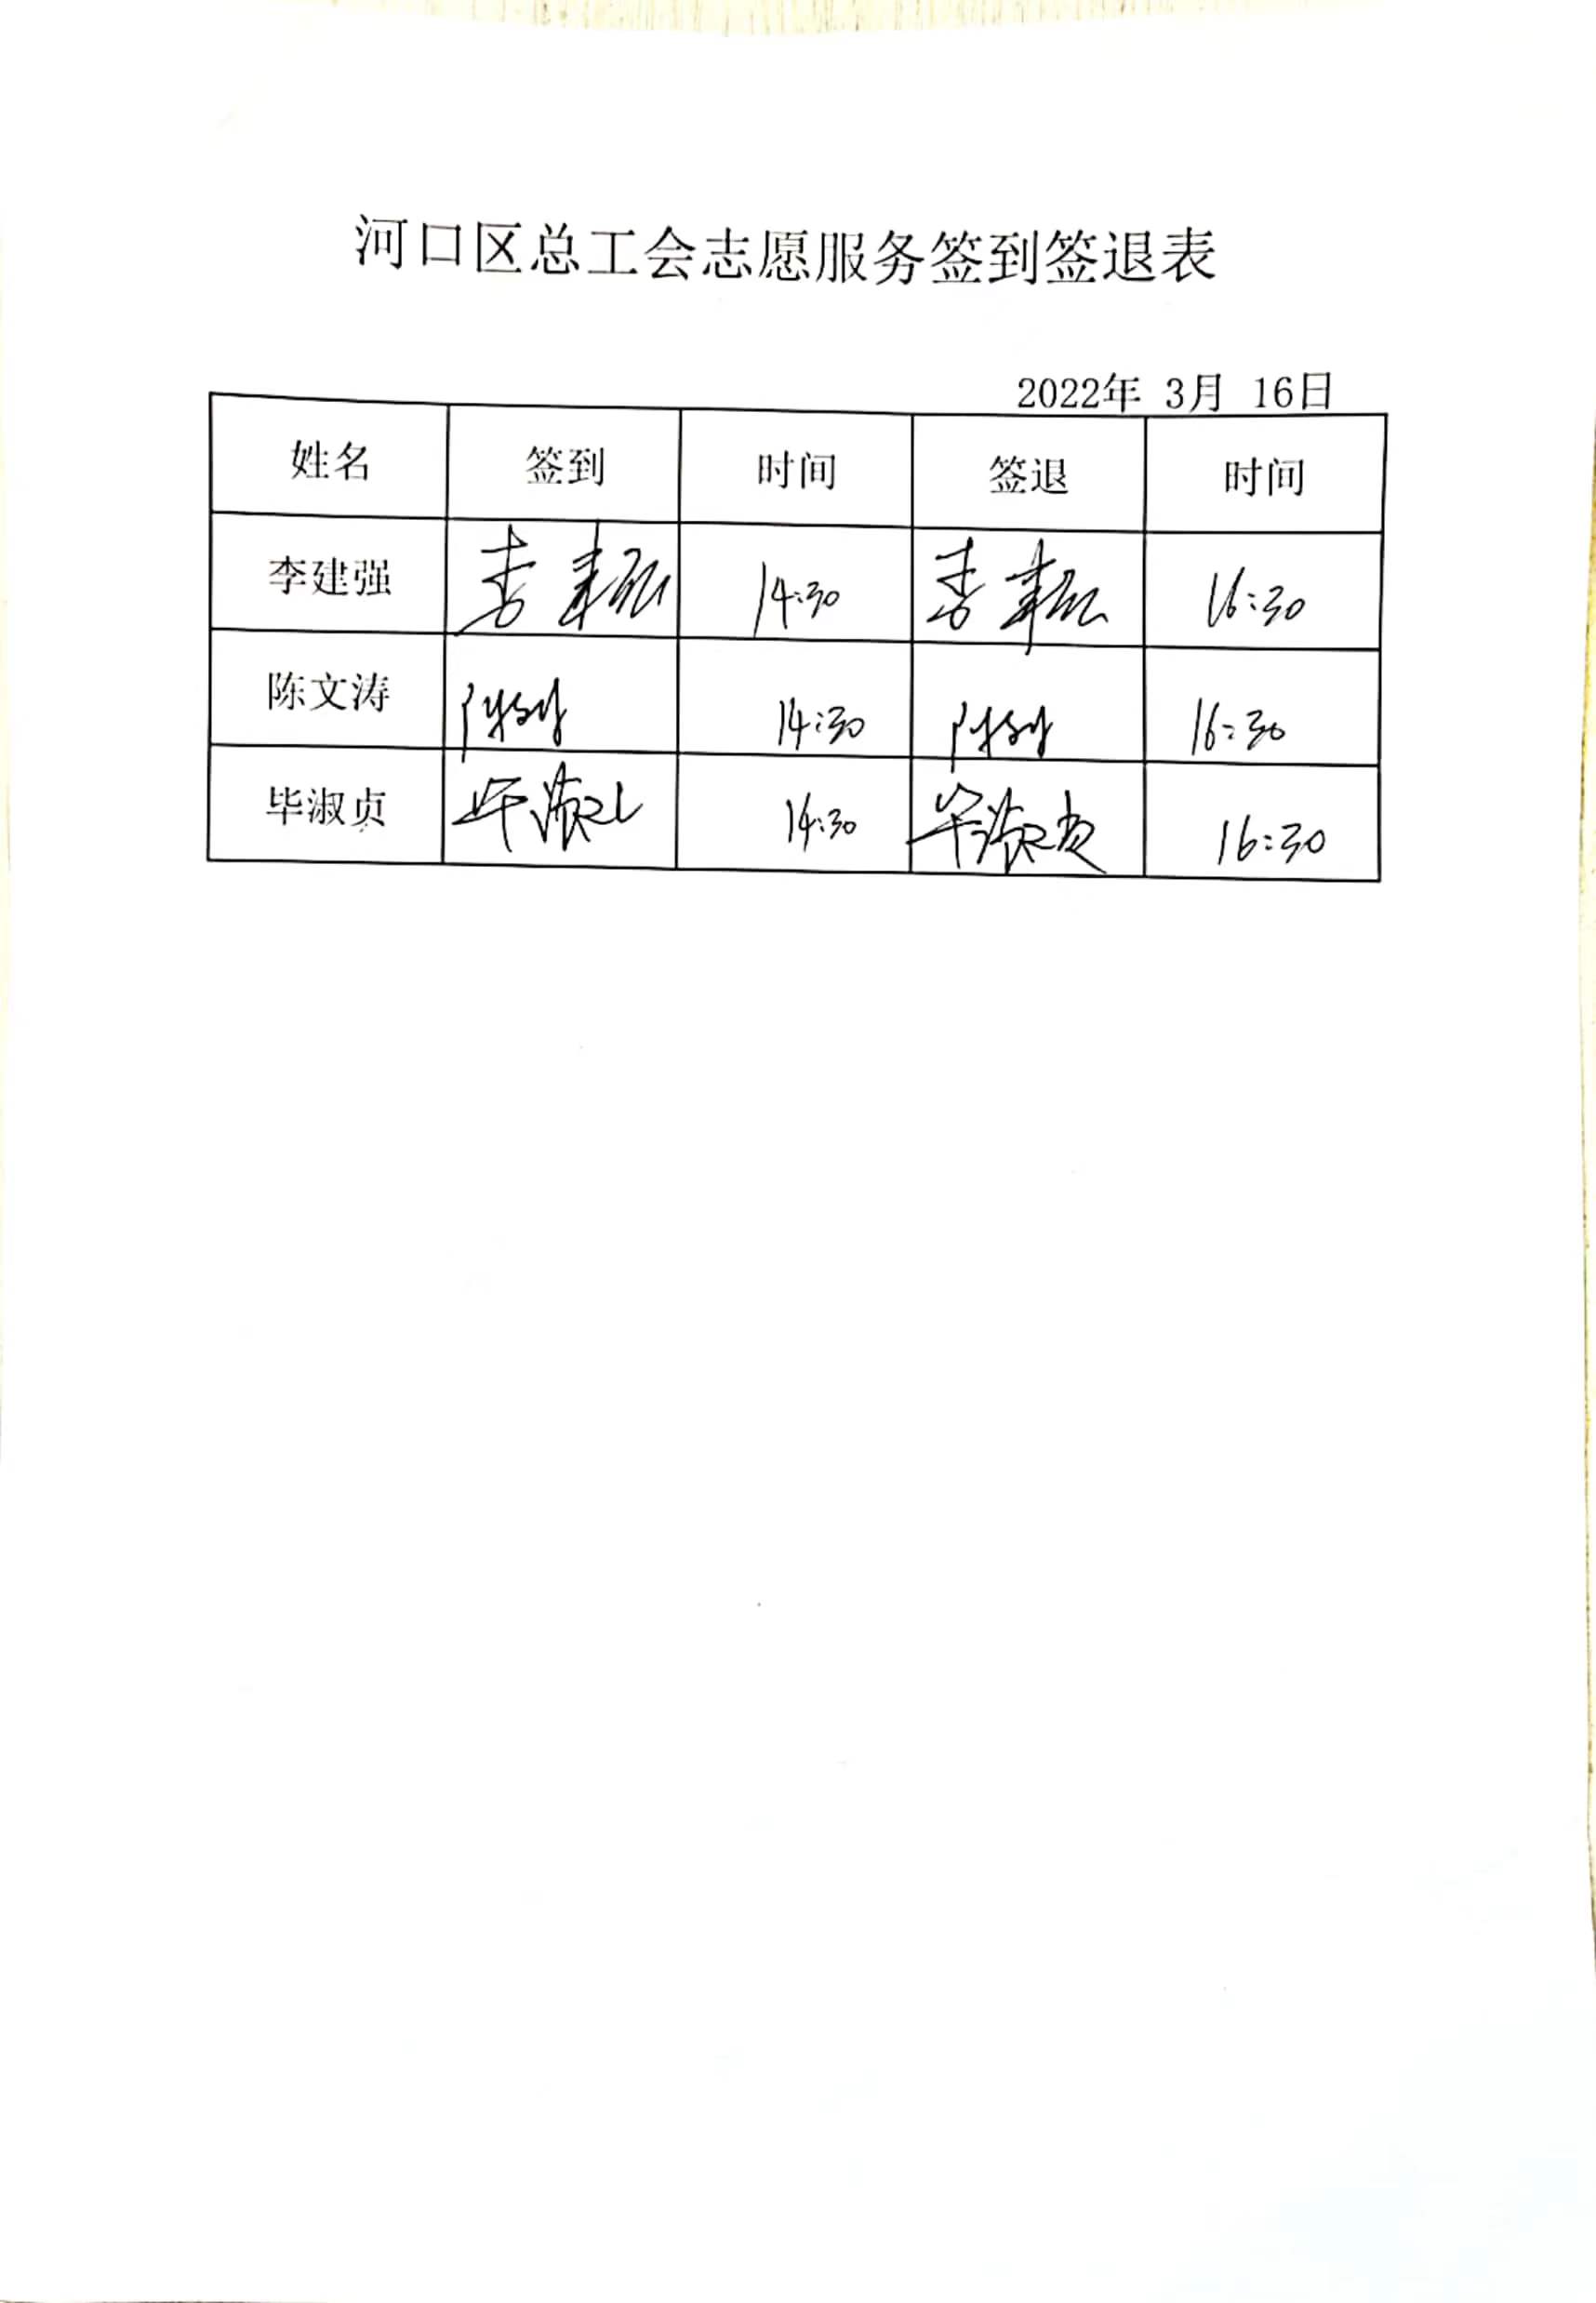 河口区总工会志愿服务签到签退表
2022年 3月 16日
姓名 签到 时间 签退 时间
李建强 李建强 14:30 李建强 16:30
陈文涛 14:30 16:30
毕淑贞 毕淑贞 14:30 毕淑贞 16:30